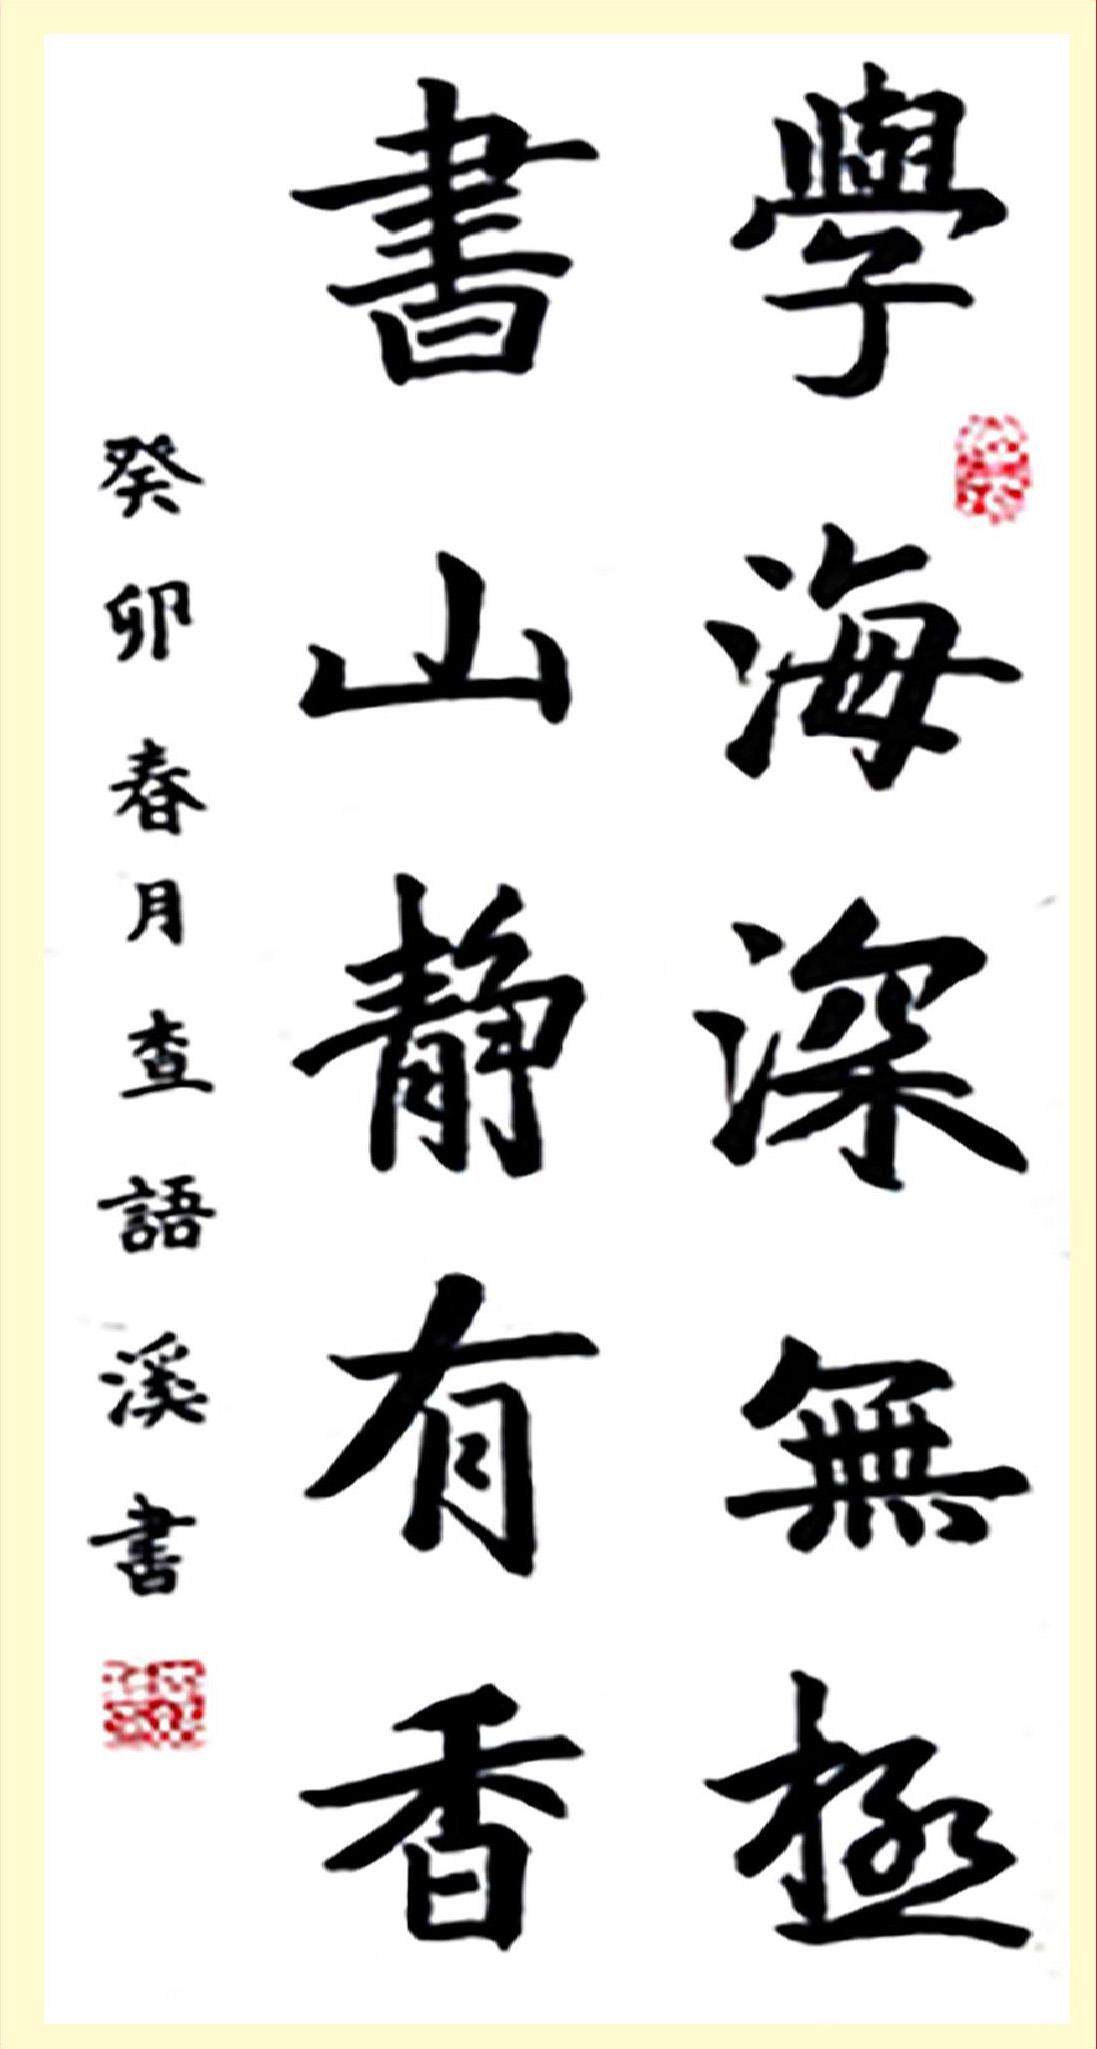 學海深無極
書山靜有香
癸卯春月查語溪書